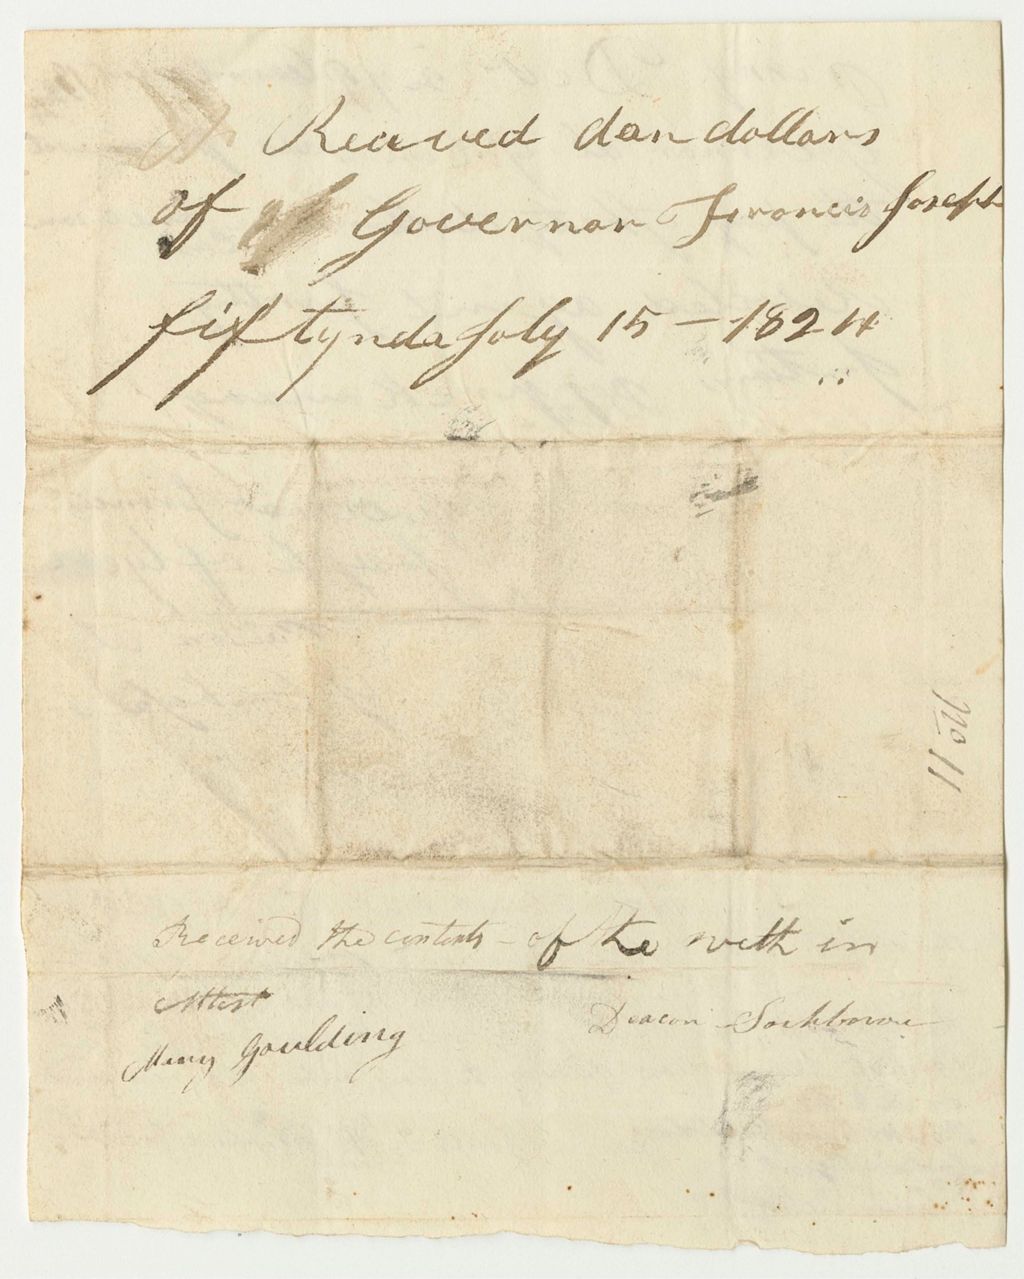 Reaived dan dollars
of Governor Francis Joseph
fiftynda Joly 15 - 1824
No 11
Received the contents - of the with in
Attest
Deacon Sockbason
Mary Goulding